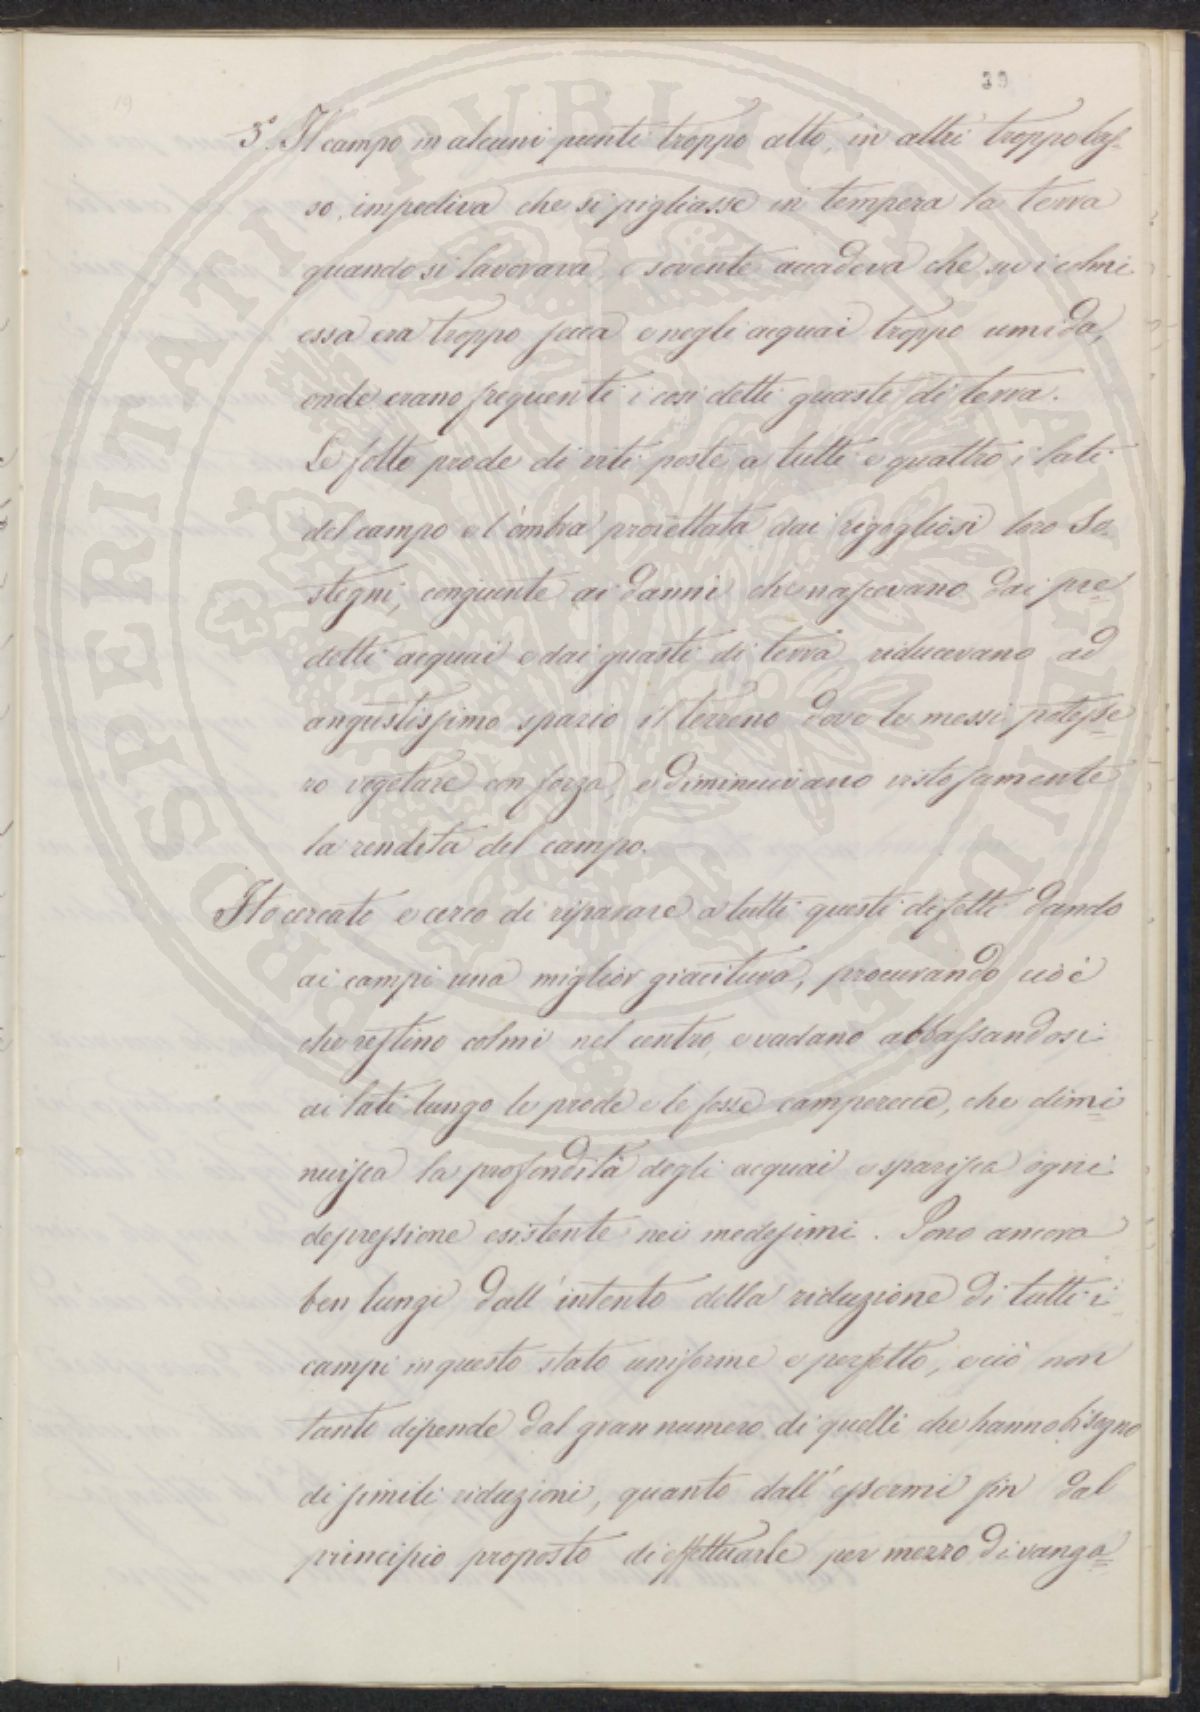 39
19
5.° Il campo in alcuni punti troppo alto, in altri troppo bas-
so, impediva che si pigliasse in tempera la terra
quando si lavorava, e sovente accadeva che su i colmi
essa era troppo secca e negli acquai troppo umida,
onde erano frequenti i così detti guasti di terra.
Le folte prode di viti poste a tutti e quattro i lati
del campo e l'ombra proiettata dai rigogliosi loro so-
stegni, congiunte ai danni che nascevano dai pre=
detti acquai e dai guasti di terra riducevano ad
angustissimo spazio il terreno dove le messi potesse=
ro vegetare con forza, e diminuivano vistosamente
la rendita del campo.
Ho cercato e cerco di riparare a tutti questi difetti dando
ai campi una miglior giacitura, procurando cioè
che restino colmi nel centro, e vadano abbassandosi
ai lati lungo le prode e le fosse camperecce, che dimi=
nuisca la profondità degli acquai e sparisca ogni
depressione esistente nei medesimi. Sono ancora
ben lungi dall'intento della riduzione di tutti i
campi in questo stato uniforme e perfetto, e ciò non
tanto dipende dal gran numero di quelli che hanno bisogno
di simili riduzioni, quanto dall'essermi fin dal
principio proposto di effettuarle per mezzo di vanga=
PROSPERITATI PUBLICAE AUGENDAE